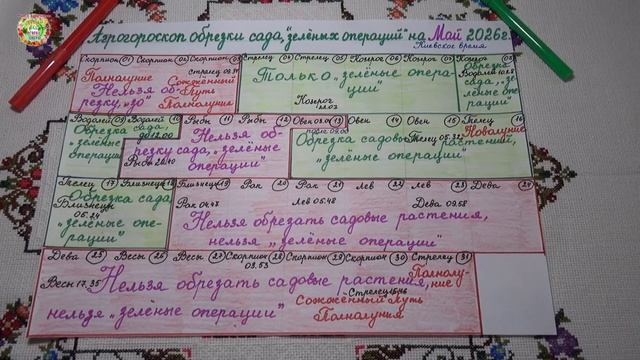 Агрогороскоп обрезки сада, "зелёных операций" на Май 2026г.
Киевское время
Скорпион 01 Скорпион 02 Скорпион 03 Стрелец 04 Стрелец 05 Козерог 06 Козерог 07 Козерог 08
Полнолуние Сожжённый
Нельзя об- Путь
резку "зо" Полнолуния
Только "зелёные опера-
ции"
Козерог
Обрезка
Водолей
сада, "зе-
лёные опе-
рации"
Водолей 09 Водолей 10 Рыбы 11 Рыбы 12 Овен 13 Овен 14 Овен 15 Телец 16
Обрезка сада,
"зелёные
операции"
до 12.00
Рыбы
Нельзя об-
резку сада, "зелёные
операции"
после 09.00
Телец
Новолуние
Обрезка садовые растений,
"зелёные операции"
Телец 17 Близнецы 18 Близнецы 19 Рак 20 Рак 21 Лев 22 Лев 23 Дева 24
Близнецы
Обрезка сада,
"зелёные опе-
рации"
Рак 04.47 Лев 05.48 Дева 09.58
Нельзя обрезать садовые растения,
нельзя "зелёные операции"
Дева 25 Весы 26 Весы 27 Скорпион 28 Скорпион 29 Скорпион 30 Стрелец 31
Весы 17.35
03.53
Полнолу-
ние
Нельзя обрезать садовые растения,
Стрелец
нельзя "зелёные операции"
Сожжённый путь
Полнолуния